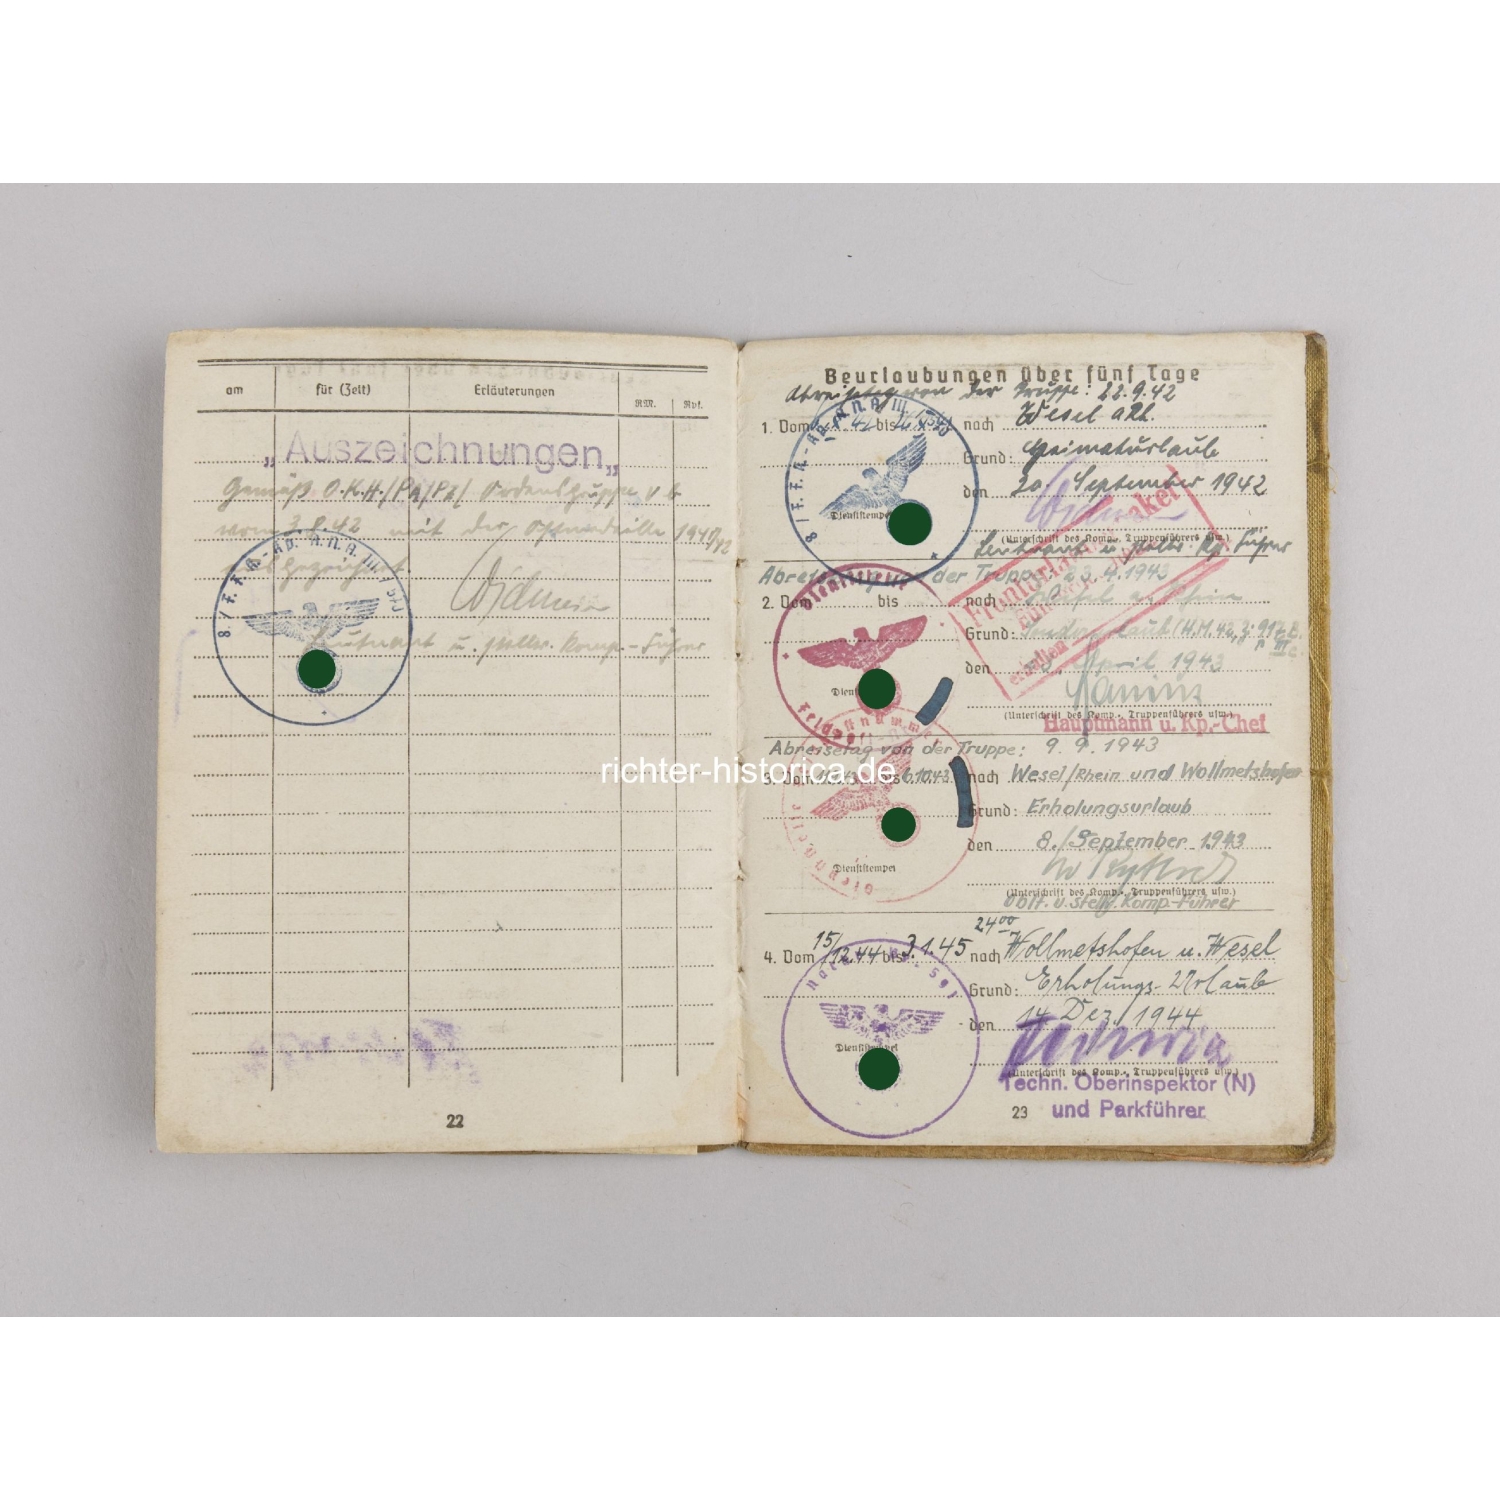 am für (Zeit) Erläuterungen RM. Rpf.
„Auszeichnungen„
Gemäß O.K.H./PA/P2/ Ordensgruppe v b
vom 3.8.42 mit der Ostmedaille 1941/42
ausgezeichnet.
8./F.E.A.-Ap. A.N.A. III./
Leutnant u. stellv. Komp.-Führer
22
Beurlaubungen über fünf Tage
Abreisetag von der Truppe: 22.9.42
1. Vom bis nach Wesel a Rh.
Grund: Heimaturlaub
den 20. September 1942
Dienststempel
(Unterschrift des Komp., Truppenführers usw.)
Leutnant u. stellv. Kp. Führer
Abreisetag von der Truppe 23.4.1943
2. Vom bis nach Wesel a. Rhein
Grund: Sonderurlaub (H.M.42, Z: 917
den April 1943
Fronturlauberpaket
erhalten
Dienststelle
Feldpost
(Unterschrift des Komp., Truppenführers usw.)
Hauptmann u. Kp.-Chef
Abreisetag von der Truppe: 9.9.1943
richter-historica.de
3. Vom bis 6.10.43 nach Wesel/Rhein und Wollmetshofen
Grund: Erholungsurlaub
den 8./September 1943
Dienststempel
(Unterschrift des Komp., Truppenführers usw.)
Oblt. u. stellv. Komp.-Führer
24⁰⁰
4. Vom 15/12.44 bis 3.1.45 nach Wollmetshofen u. Wesel
Grund: Erholungs-Urlaub
den 14 Dez. 1944
Dienststempel
(Unterschrift des Komp., Truppenführers usw.)
Techn. Oberinspektor (N)
23 und Parkführer